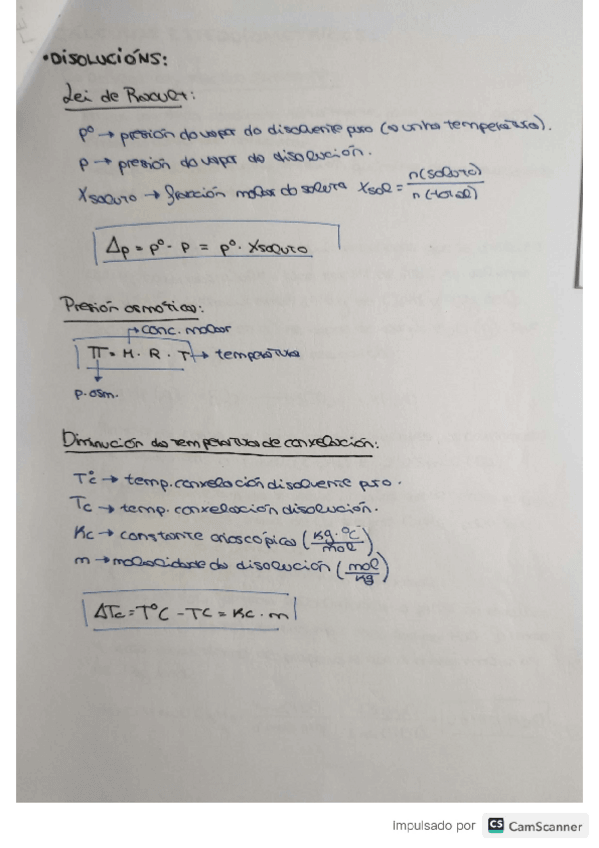 • DISOLUCIÓNS:
Lei de Raoult:
p° → presión do vapor do disolvente puro (a unha temperatura).
p → presión do vapor da disolución.
Xsoluto → fracción molar do soluto Xsol = n(soluto) / n(total)
Δp = p° - p = p° · Xsoluto
Presión osmótica:
→ conc. molar
π = M · R · T → temperatura
p. osm.
Diminución da temperatura de conxelación:
T°c → temp. conxelación disolvente puro.
Tc → temp. conxelación disolución.
Kc → constante crioscópica (Kg · °C / mol)
m → molalidade da disolución (mol / Kg)
ΔTc = T°c - Tc = Kc · m
Impulsado por CS CamScanner